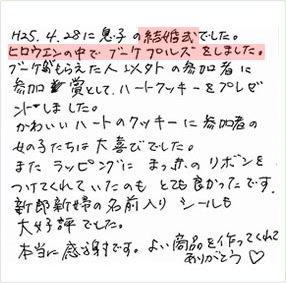 H25.4.28に息子の結婚式でした。
ヒロウエンの中でブーケプルズをしました。
ブーケがもらえた人以外の参加者に
参加賞として、ハートクッキーをプレゼ
ントしました。
かわいいハートのクッキーに参加者の
女の子たちは大喜びでした。
またラッピングにまっ赤のリボンを
つけてくれていたのもとても良かったです。
新郎新婦の名前入りシールも
大好評でした。
本当に感謝です。よい商品を作ってくれて
ありがとう♡